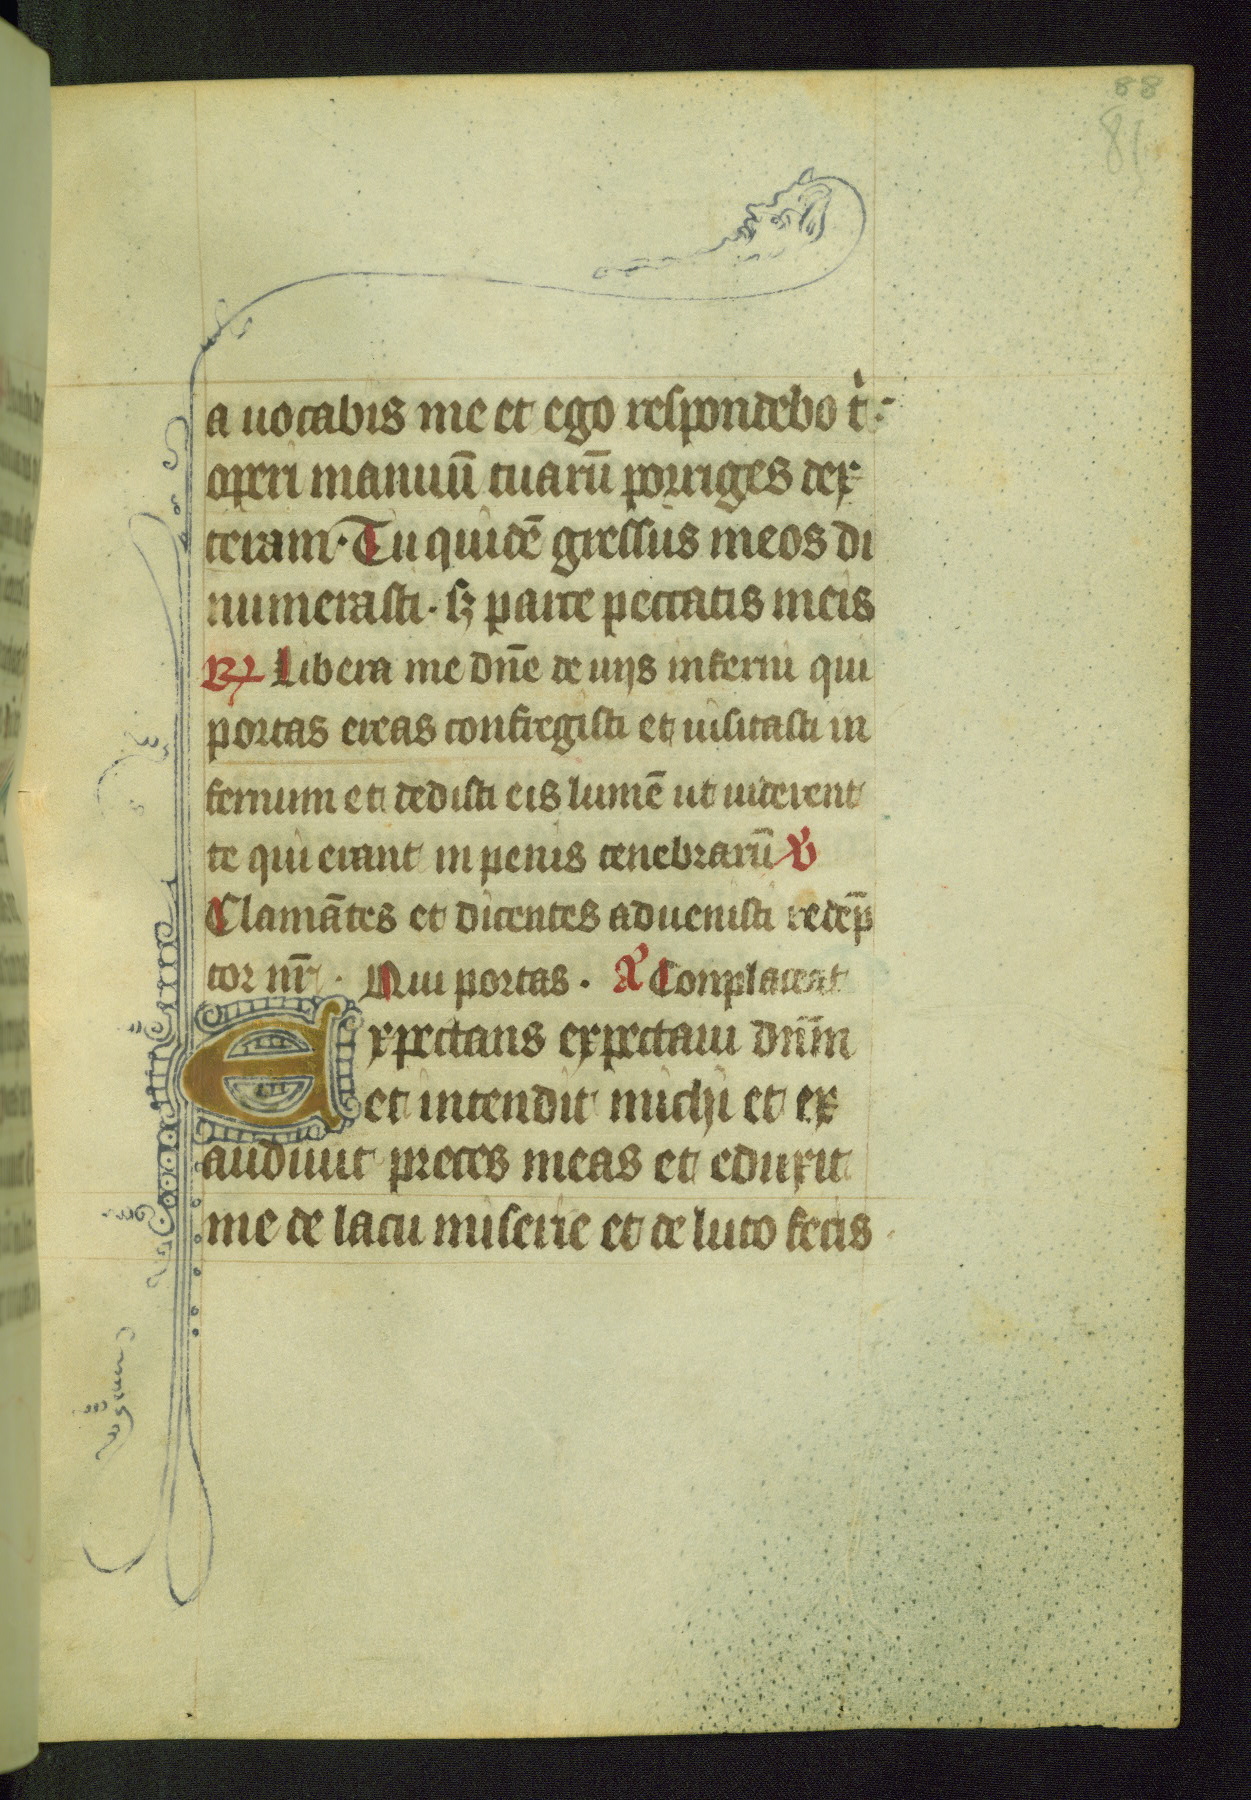 88
a uocabis me et ego respondebo t̍:
operi manuū tuarū porriges dex
teram· Tu quidē gressus meos di
numerasti· sꝫ parce peccatis meis
℟ Libera me dn̄e de uijs inferni qui
portas ereas confregisti et uisitasti in
fernum et dedisti eis lumē ut uiderent
te qui erant in penis tenebrarū ℣
Clamātes et dicentes aduenisti redēp
tor nr̄ · Qui portas · A Conplaceat
Expectans expectaui dn̄m
et intendit michi et ex
audiuit preces meas et eduxit
me de lacu miserie et de luto fecis